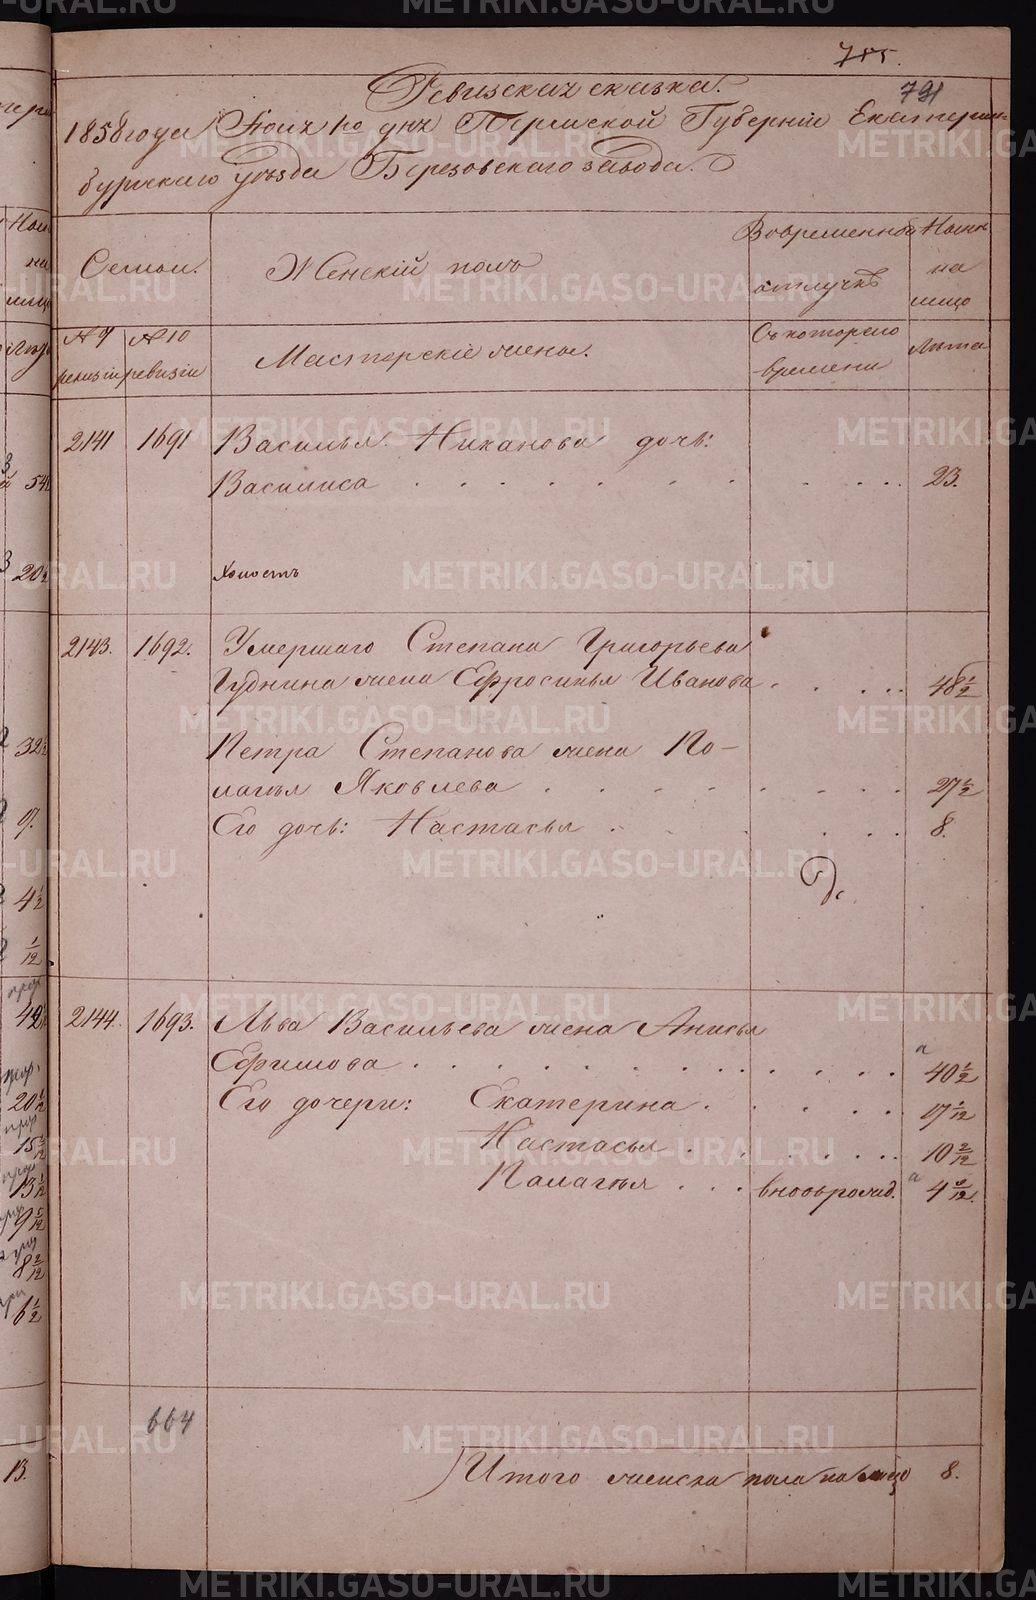 755.
791
Ревизская сказка.
1858 года Июня 1го дня Пермской Губерніи Екатерин-
бургскаго уѣзда Березовскаго завода.
Семьи.
Женскій полъ
Вовременной отлучкѣ
Нали на лицо
№ 9 ревизіи
№ 10 ревизіи
Мастерскіе жены.
Съ котораго времени
Лѣта
2141 1691 Василья Никанова дочь:
Василиса 23.
Холостъ
2143. 1692. Умершаго Степана Григорьева
жена Ефросинья Иванова 48 1/2
Петра Степанова жена По-
лагѣя Яковлева 27 1/2
Его дочь: Настасья 8.
2144. 1693. Льва Васильева жена Анисья
Ефимова 40 1/2
Его дочери: Екатерина 17 1/12
Настасья 10 2/12
Палагѣя вновьрожд. 4
664
Итого женска пола на лицо 8.
METRIKI.GASO-URAL.RU